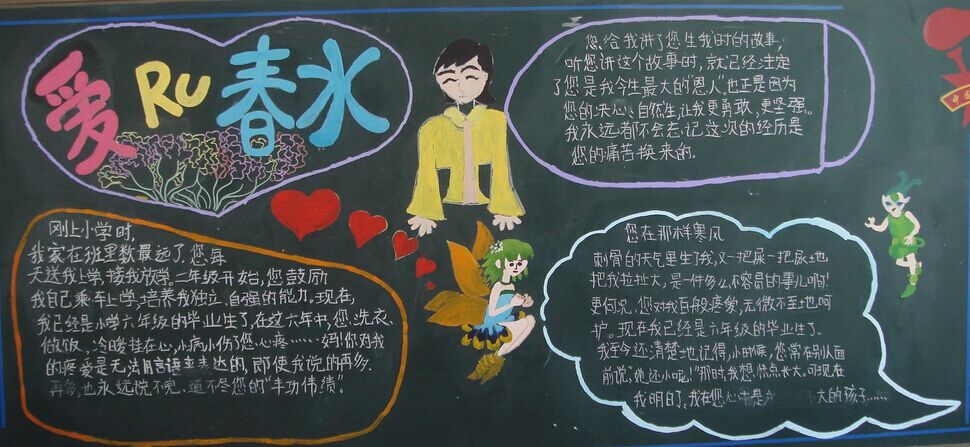 爱Ru春水
您给我讲了您生我时的故事,
听您讲这个故事时,就已经注定
了您是我今生最大的"恩人"。也正是因为
您的决心、自然生,让我更勇敢、更坚强。
我永远都不会忘记这次的经历是
您的痛苦换来的。
刚上小学时,
我家在班里数最远了,您每
天送我上学,接我放学。二年级开始,您鼓励
我自己乘车上学,培养我独立、自强的能力。现在,
我已经是小学六年级的毕业生了,在这六年中,您洗衣、
做饭,冷暖挂在心,小病小伤了您心疼……妈!你对我
的疼爱是无法用言语来表达的,即使我说的再多、
再多,也永远说不完、道不尽您的"丰功伟绩"。
您在那样寒风
刺骨的天气里生了我,又一把屎一把尿地
把我拉扯大,是一件多么不容易的事儿啊!
更何况,您对我百般疼爱,无微不至地呵
护。现在我已经是六年级的毕业生了。
我至今还清楚地记得,小时候,您常在别人面
前说:"她还小呢!"那时,我想快点长大,可现在
我明白了,我在您心中是 不大的孩子……
中国